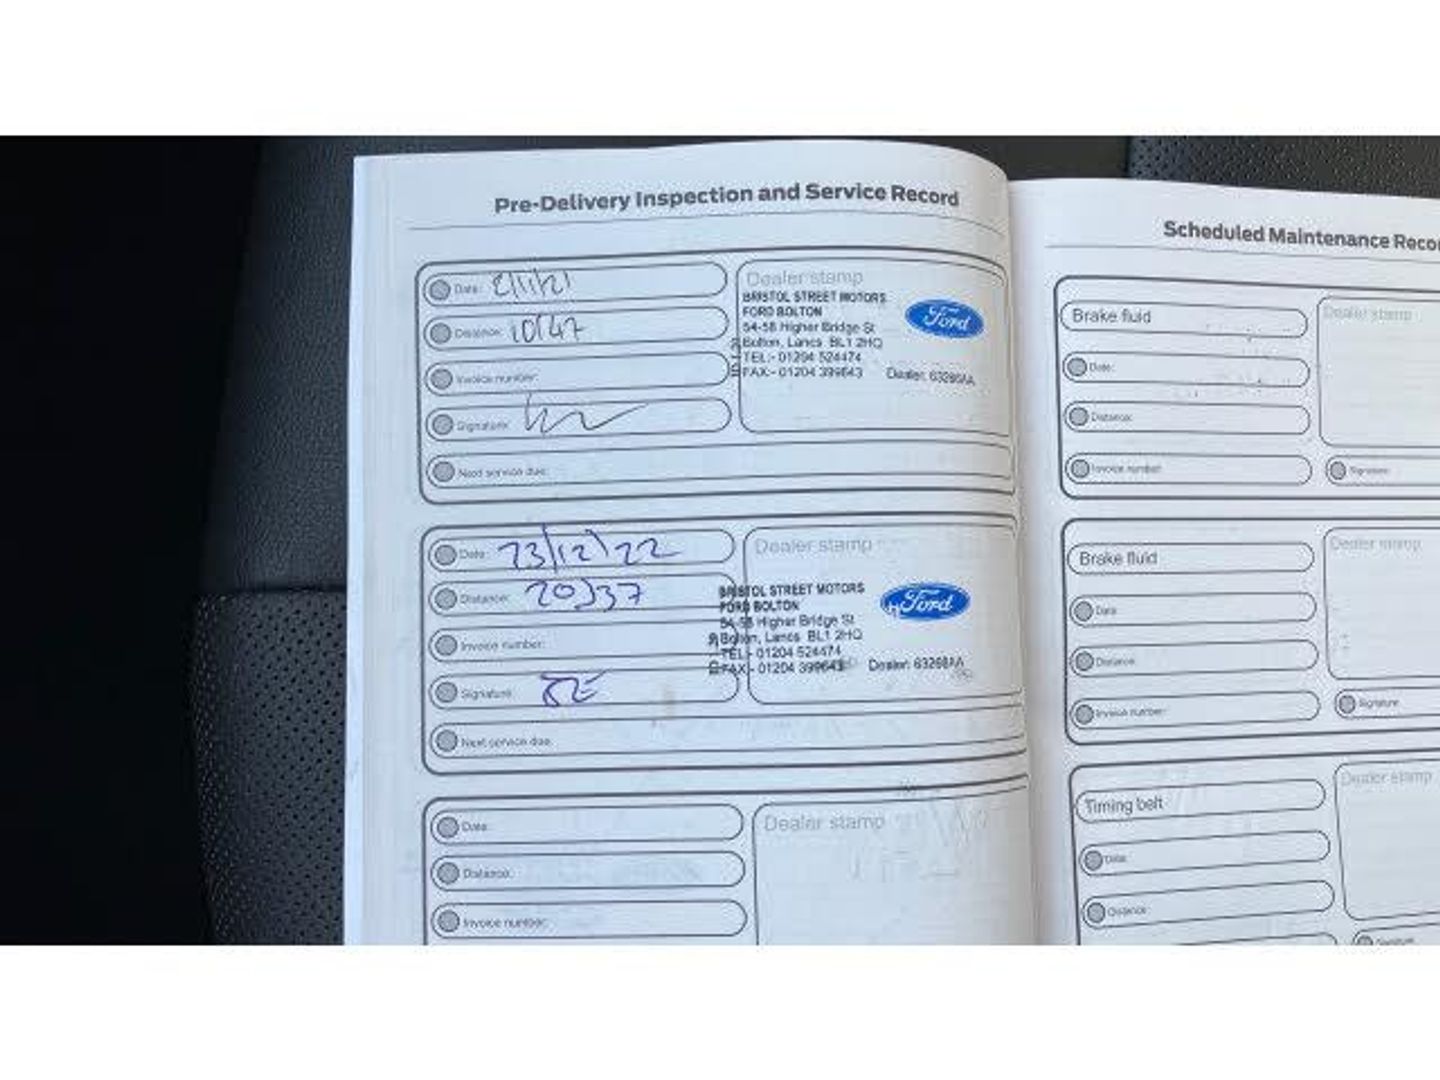 Pre-Delivery Inspection and Service Record
Date:
Distance: 10147
Invoice number:
Signature:
Next service due:
Dealer stamp
BRISTOL STREET MOTORS
FORD BOLTON
54-58 Higher Bridge St
Bolton, Lancs BL1 2HQ
TEL:- 01204 524474
FAX:- 01204 399643
Dealer: 63268AA
Ford
Date: 23/12/22
Distance:
Invoice number:
Signature:
Next service due:
Dealer stamp
BRISTOL STREET MOTORS
FORD BOLTON
54-58 Higher Bridge St
Bolton, Lancs BL1 2HQ
TEL:- 01204 524474
FAX:- 01204 399643
Dealer: 63268AA
Ford
Date:
Distance:
Invoice number:
Dealer stamp
Scheduled Maintenance Recor
Brake fluid
Date:
Distance:
Invoice number:
Dealer stamp
Signature
Brake fluid
Date
Distance:
Invoice number:
Dealer stamp
Signature
Timing belt
Date:
Distance:
Dealer stamp
Signature